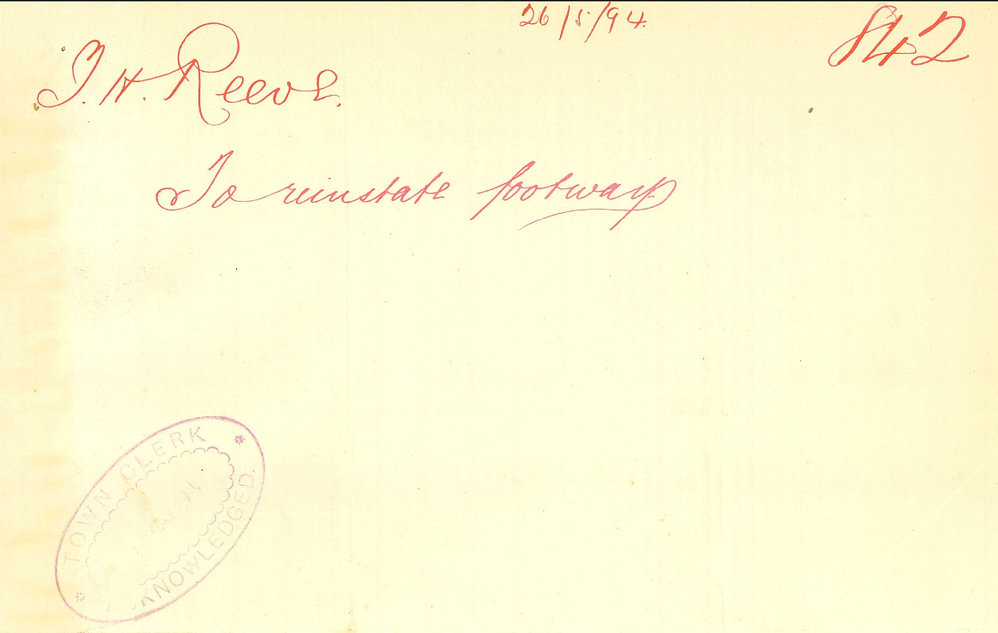 26/5/94.
842
J. H. Reeve.
To reinstate footway
TOWN CLERK
ACKNOWLEDGED.